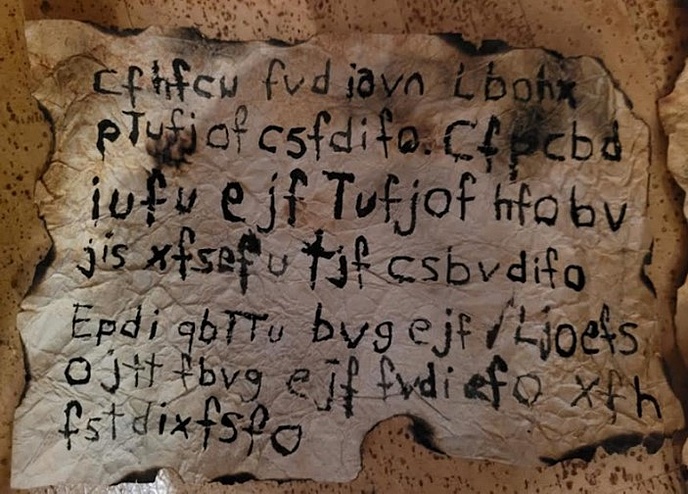 Cfhfcu fvd iavn Lbohx
pTufjof csfdifo. Cfpcbd
iufu ejf Tufjof hfobv
jis xfsefu tjf csbvdifo
Epdi qbTTu bvg ejf Ljoefs
Ojtt fbvg ejf fvdi efo xfh
fstdixfsfo